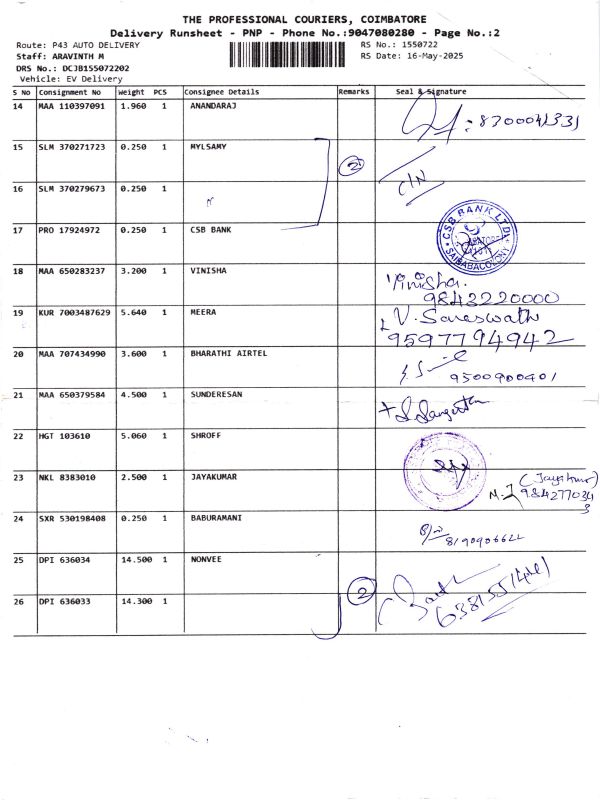 THE PROFESSIONAL COURIERS, COIMBATORE
Delivery Runsheet - PNP - Phone No.:9047080280 - Page No.:2
Route: P43 AUTO DELIVERY RS No.: 1550722
Staff: ARAVINTH M RS Date: 16-May-2025
DRS No.: DCJB155072202
Vehicle: EV Delivery
S No Consignment No Weight PCS Consignee Details Remarks Seal & Signature
14 MAA 110397091 1.960 1 ANANDARAJ
15 SLM 370271723 0.250 1 MYLSAMY
2
16 SLM 370279673 0.250 1
17 PRO 17924972 0.250 1 CSB BANK
CSB BANK LTD
SAIBABACOLONY
18 MAA 650283237 3.200 1 VINISHA
Vinisha.
9843220000
19 KUR 7003487629 5.640 1 MEERA
9597794942
20 MAA 707434990 3.600 1 BHARATHI AIRTEL
9500900401
21 MAA 650379584 4.500 1 SUNDERESAN
22 HGT 103610 5.060 1 SHROFF
23 NKL 8383010 2.500 1 JAYAKUMAR
24 SXR 530198408 0.250 1 BABURAMANI
25 DPI 636034 14.500 1 NONVEE
2
26 DPI 636033 14.300 1